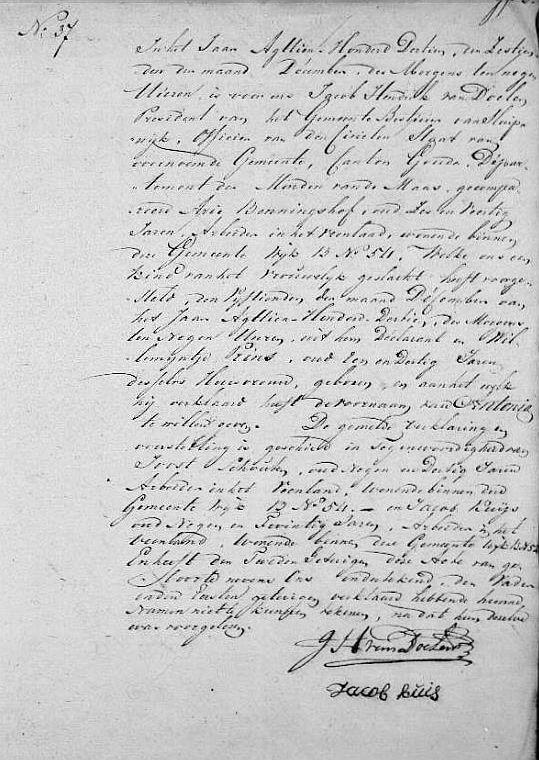 No. 37
In het Jaar Agttien Honderd Dertien, den Zestien
den der maand December, des Morgens ten negen
Uuren, is voor ons Jacob Hendrik van Doelen
President van het Gemeente Bestuur van Sluip
wijk, Officier van den Civielen Staat van
voornoemde Gemeente, Canton Gouda, Depar
tement der Monden van de Maas, gecompa
reerd Arie Benningshof, oud Zes en Veertig
Jaren, Arbeider in het Veenland, wonende binnen
deze Gemeente Wijk B No. 54. Welke ons een
kind van het Vrouwelyk geslacht heeft voorge
steld, den Vyftienden der maand December van
het Jaar Agttien Honderd Dertien, des Morgens
ten Negen Uuren, uit hem Declarant en Wil
lemyntje Prins, oud Een en Dertig Jaren
deszelfs Huisvrouw, geboren, en aan het welk
hij verklaard heeft de voornaam van Antonia
te willen geven. De gemelde verklaring en
voorstelling is geschied in Tegenwoordigheid van
Joost Schouten, oud Negen en Dertig Jaren
Arbeider in het Veenland, Wonende binnen deze
Gemeente Wijk B No. 54. en Jacob Kuijs
oud Negen en Twintig Jaren, Arbeider in het
Veenland, Wonende binnen deze Gemeente wijk B No. 52
En heeft den Tweden Getuigen deze Acte van ge
boorte nevens Ons ondertekend, den Vader
en den Eersten getuigen verklaard hebbende hunne
Namen niet te kunnen tekenen, na dat hun dezelve
was voorgelezen.
J H van Doelen
Jacob kuis